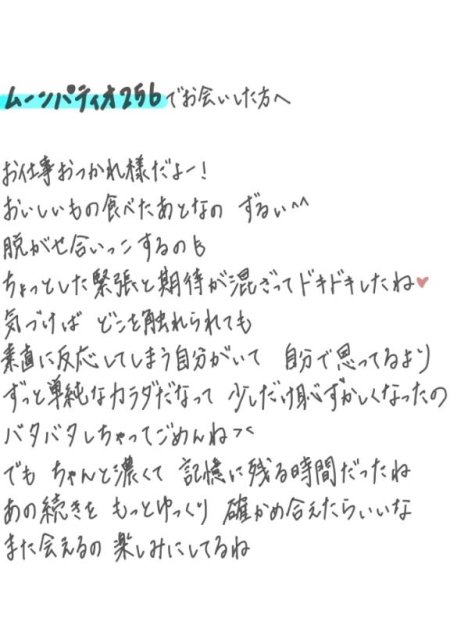 ムーンパティオ256でお会いした方へ
お仕事おつかれ様だよー!
おいしいもの食べたあとなの ずるい^^
脱がせ合いっこするのも
ちょっとした緊張と期待が混ざってドキドキしたね♥
気づけば どこを触れられても
素直に反応してしまう自分がいて 自分で思ってるより
ずっと単純なカラダだなって 少しだけ恥ずかしくなったの
バタバタしちゃってごめんね><
でも ちゃんと濃くて 記憶に残る時間だったね
あの続きを もっとゆっくり 確かめ合えたらいいな
また会えるの 楽しみにしてるね